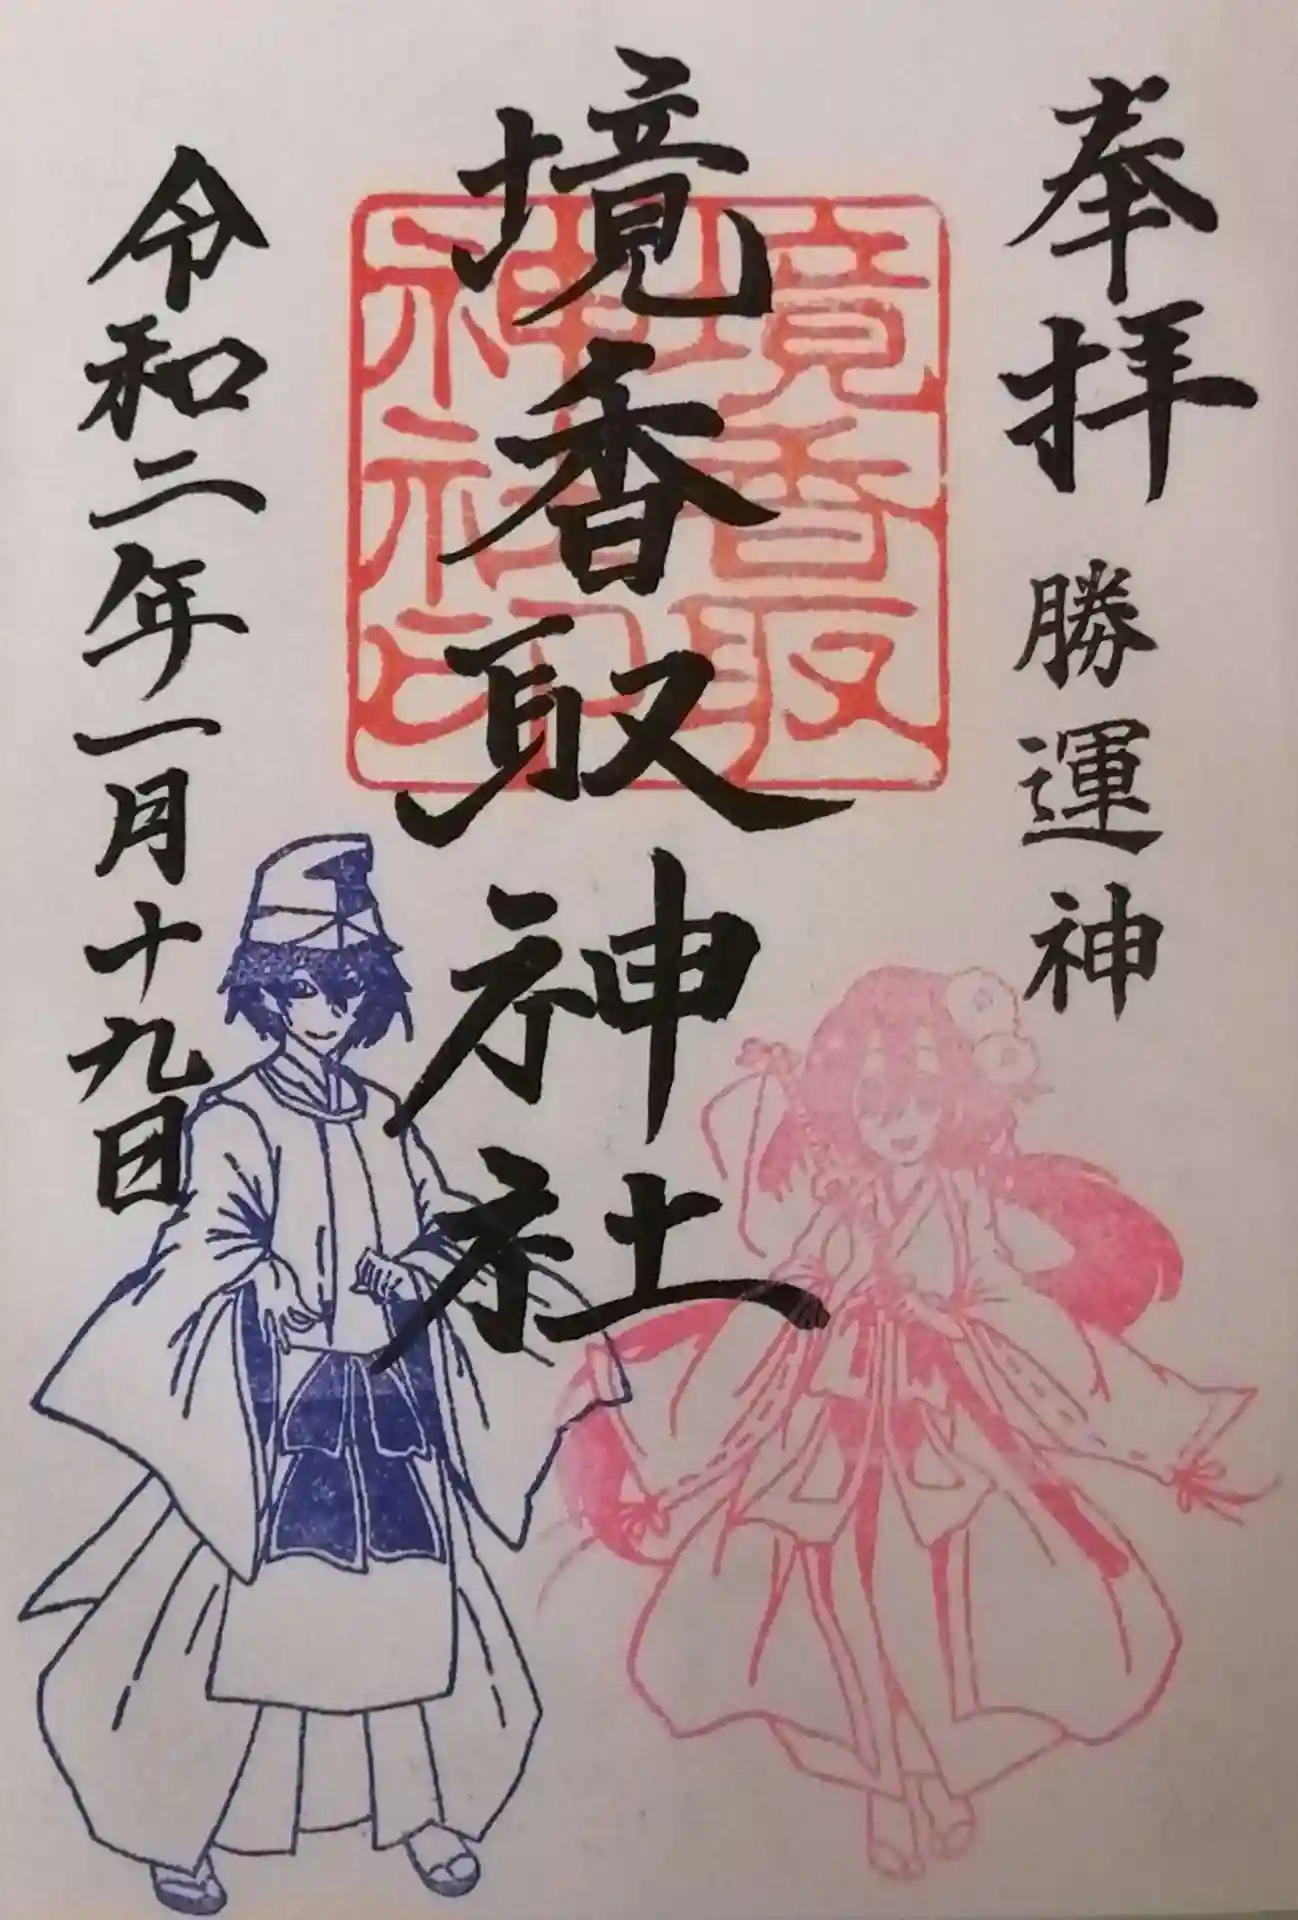 奉拝 勝運神
境香取神社
境香取
神社印
令和二年一月十九日